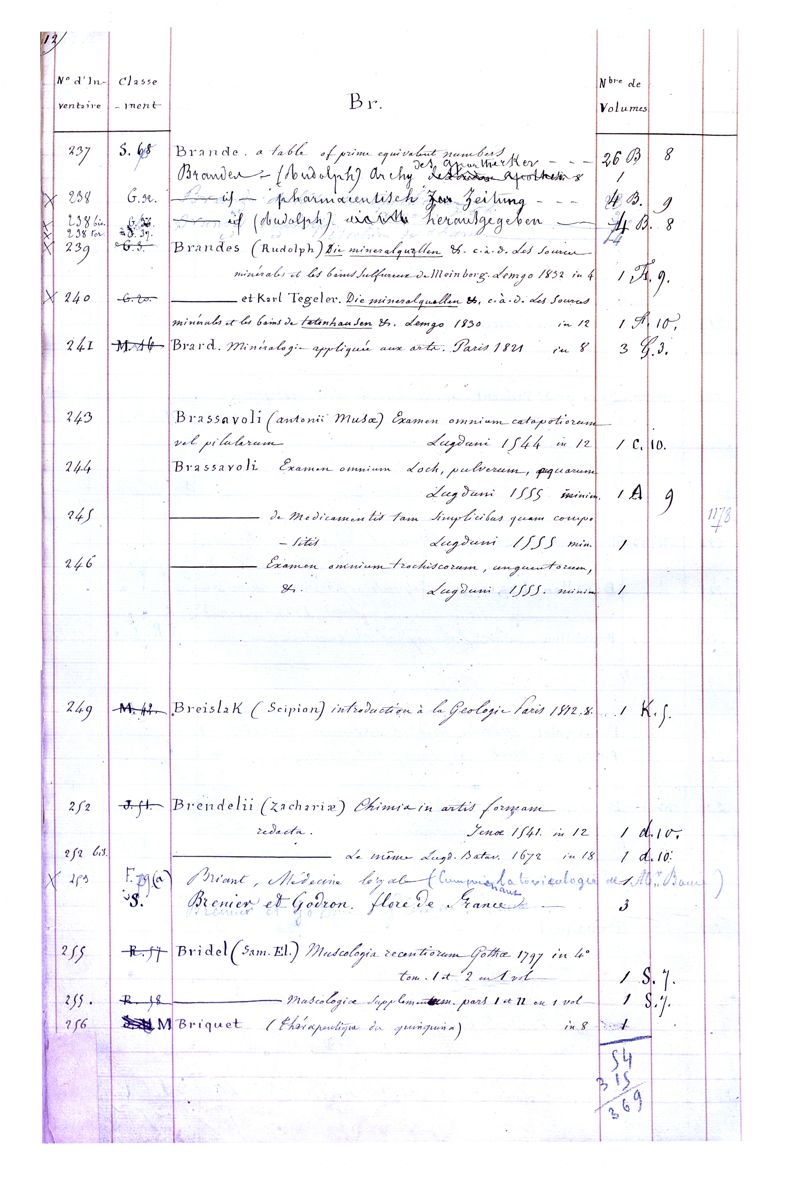 12
N° d'In- Classe Nbre de
ventaire -ment Volumes
Br.
237 S. 68 Brande. a table of prime equivalent numbers - - - 26 B 8
Brandes - (Rudolph) Archy des apotheker 8 1
238 G.32. — id — pharmaceutisch Zeitung - - - 4 B. 9
238 bis. — id (Rudolph) herausgegeben — 4 B. 8
238 ter. S. 39.
239 G.3. Brandes (Rudolph) Die mineralquellen &. c.à.d. Les Sources
minérales et les bains Sulfureux de Meinberg. Lemgo 1832 in 4 1 F. 9.
240 G.20. ——— et Karl Tegeler. Die mineralquellen &. c.à.d. Les Sources
minérales et les bains de tatenhausen &. Lemgo 1830 in 12 1 A. 10.
241 M. 16 Brard. Minéralogie appliquée aux arts. Paris 1821 in 8 3 G.3.
243 Brassavoli (antonii Musæ) Examen omnium catapotiorum
vel pilularum Lugduni 1544 in 12 1 C. 10.
244 Brassavoli Examen omnium Loch, pulverum, aquarum
Lugduni 1555 minim. 1 A 9
245 ——— de Medicamentis tam simplicibus quam compo 1178
- sitis Lugduni 1555 min. 1
246 ——— Examen omnium trochiscorum, unguentorum,
&. Lugduni 1555. minim 1
249 M. 42. Breislak (Scipion) introduction à la Geologie Paris 1812.8. 1 K. 5.
252 J. 51. Brendelii (Zachariæ) Chimia in artis formam
redacta. Jenæ 1541. in 12 1 d. 10.
252 bis. ——— Le même Lugd. Batav. 1672 in 18 1 d. 10.
253 F. 79 (a) Briant, Médecine légale (Comprenant la toxicologie de Mr. Baux) 1
S. Brenier et Godron. flore de France — 3
255 R. 57 Bridel (Sam. El.) Muscologia recentiorum Gothæ 1797 in 4°
tom. 1 et 2 en 1 vol 1 S. 7.
255. R. 58 ——— Muscologiæ Supplementum. pars 1 et II en 1 vol 1 S. 7.
256 M Briquet (Thérapeutique du quinquina) in 8 1
54
315
369